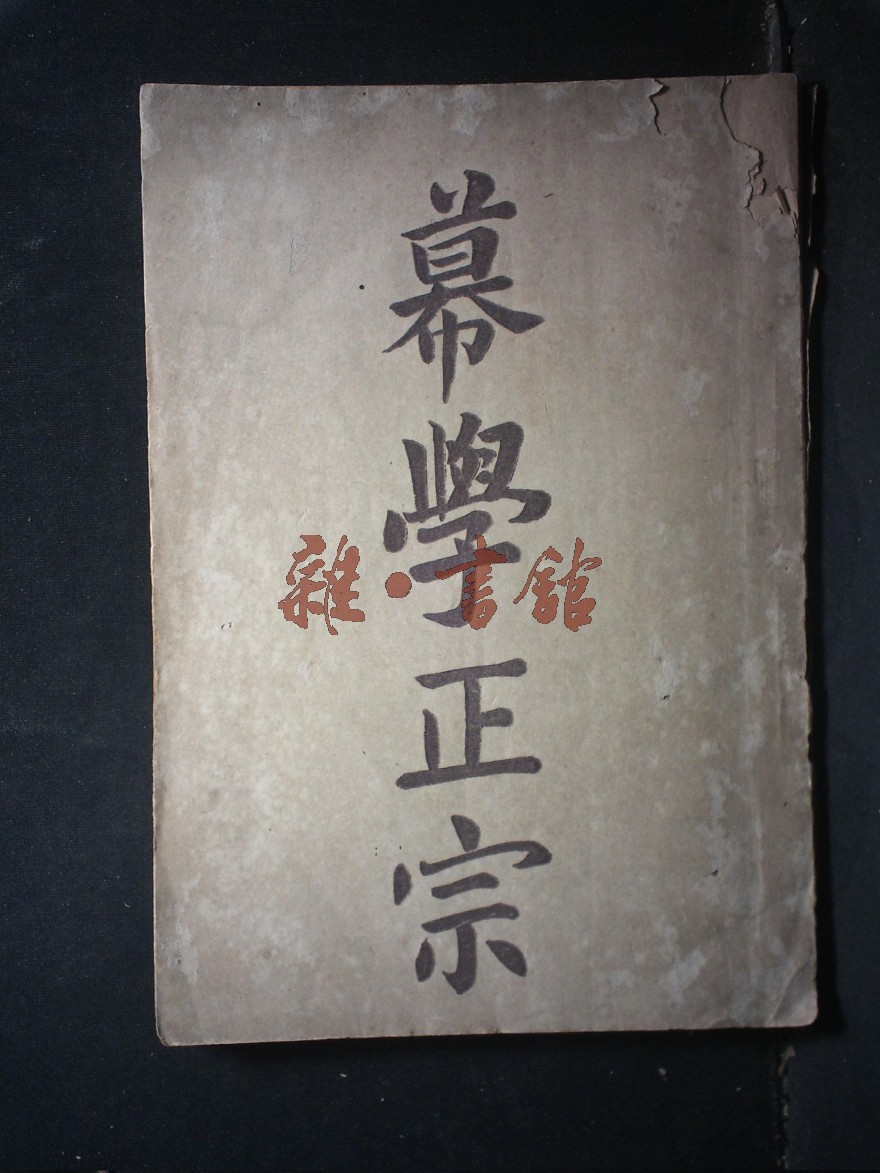 幕學正宗
雜·書館